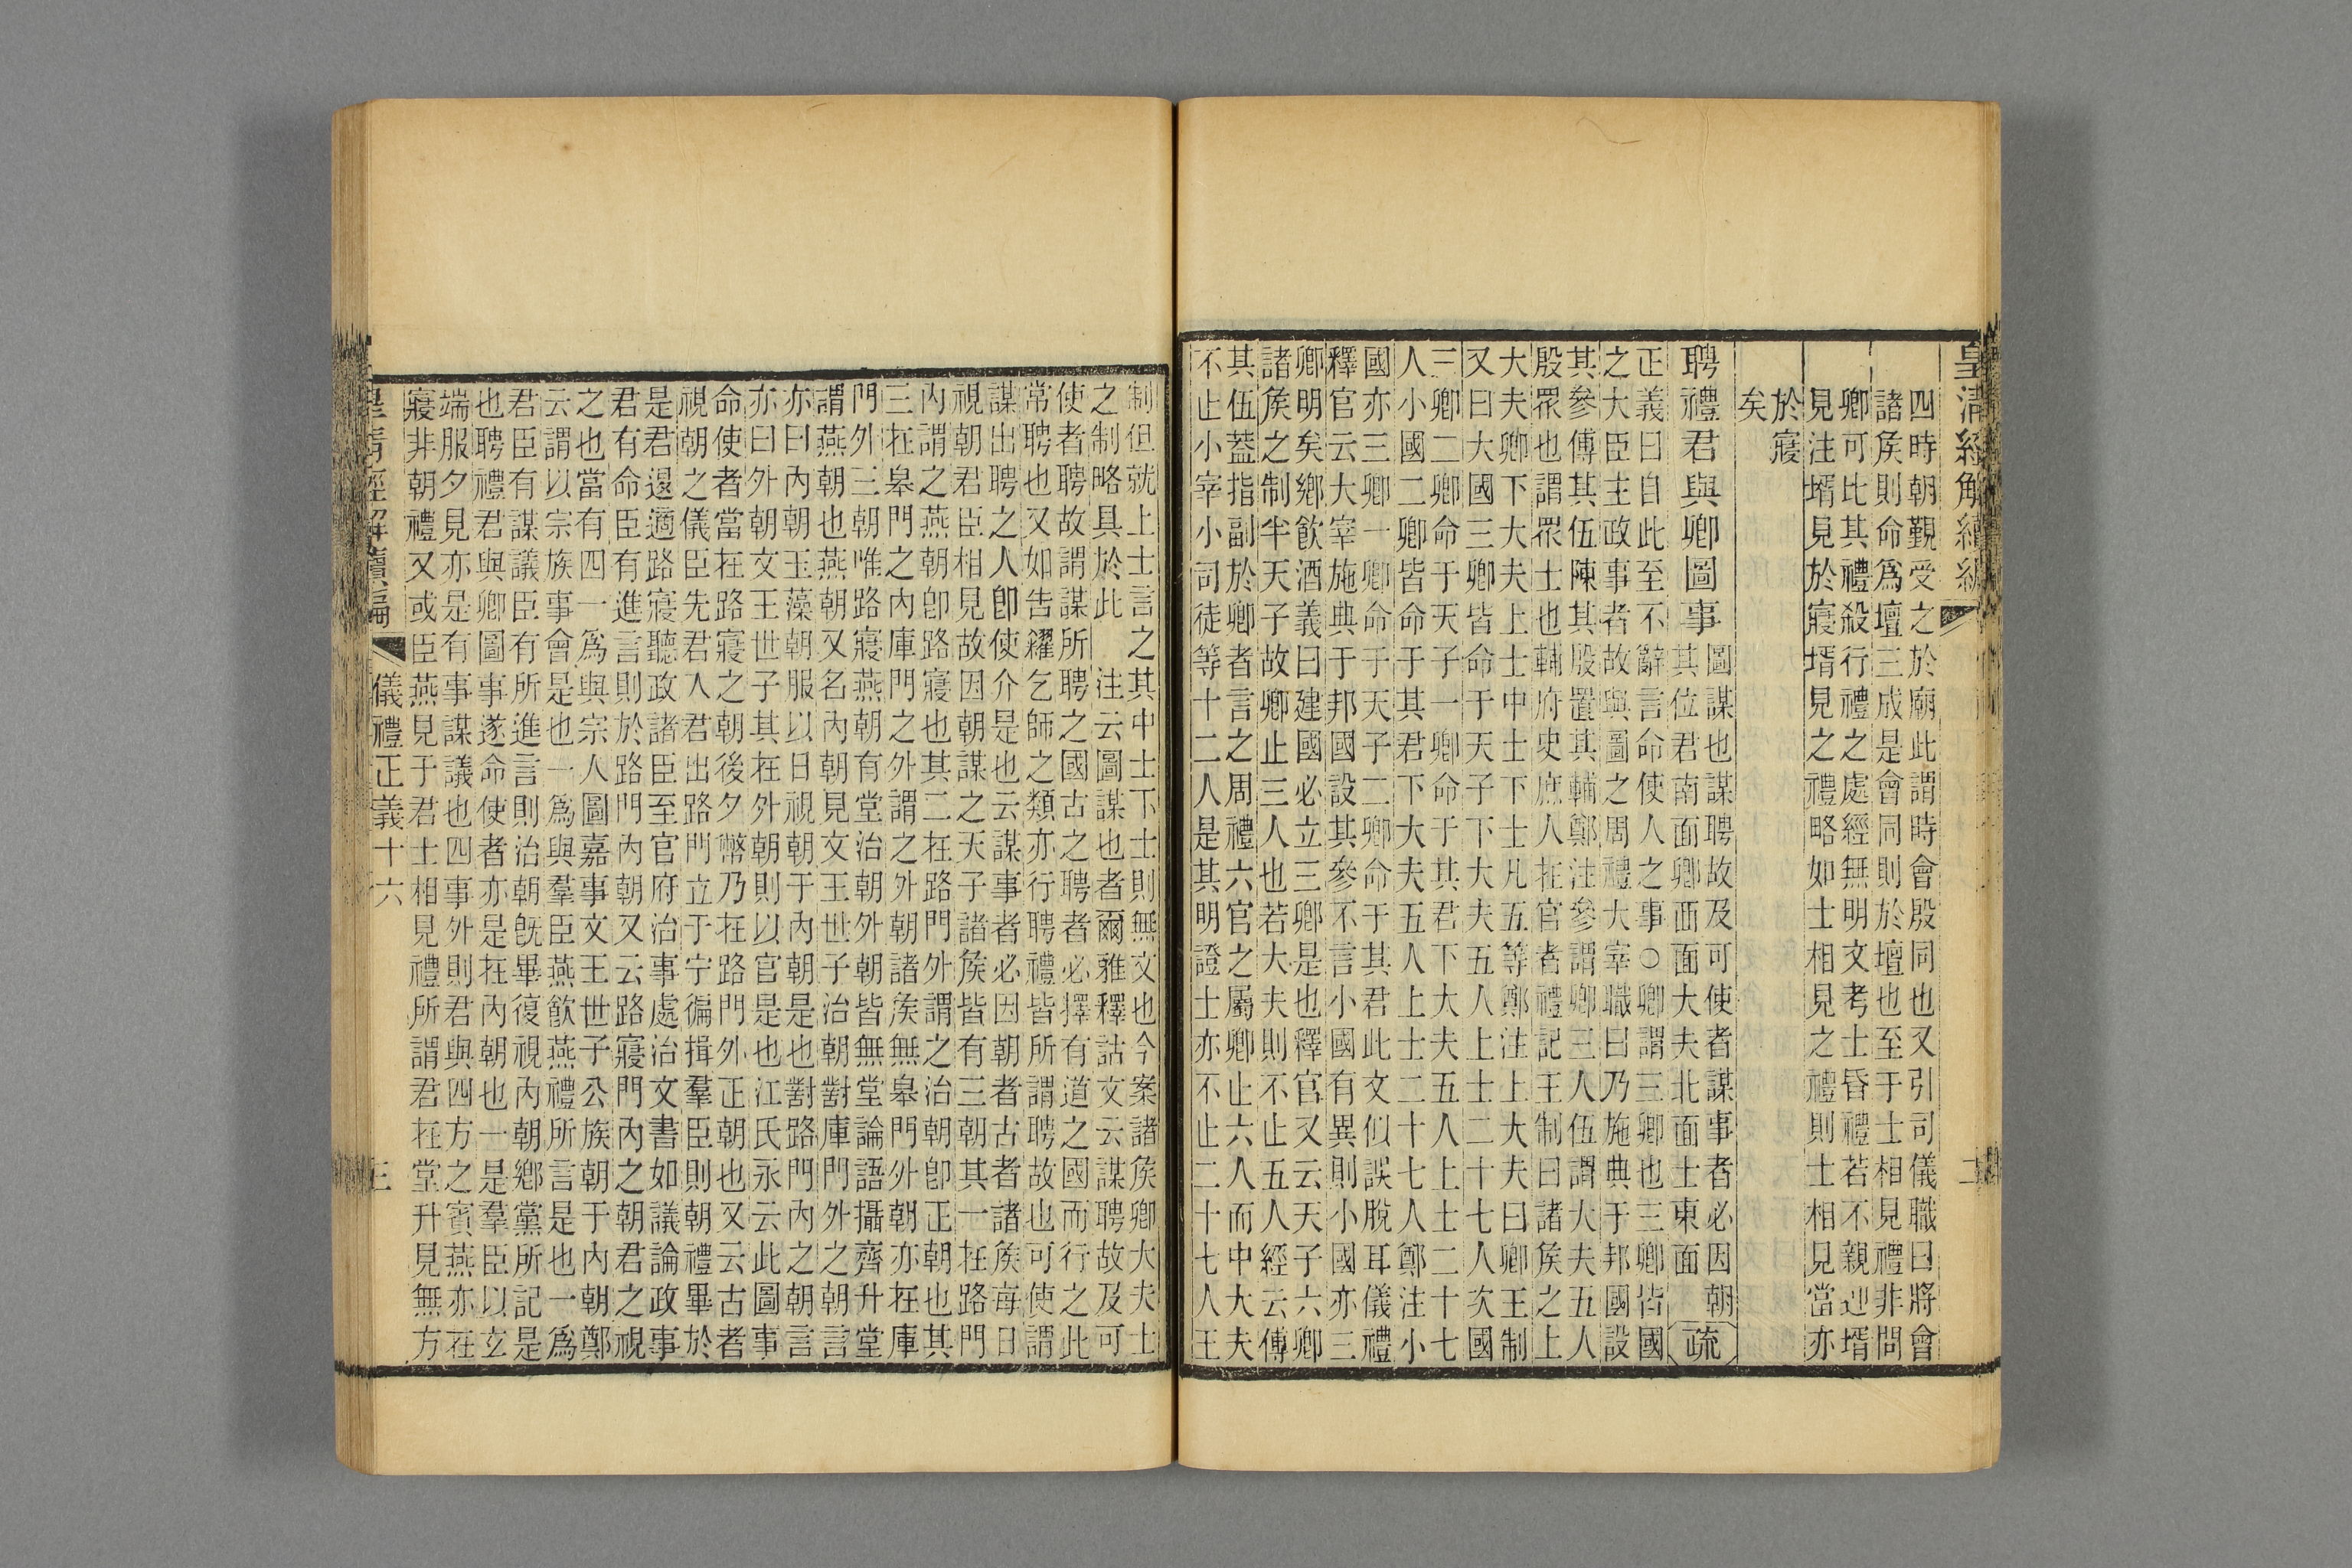 皇清經解續編
二
四時朝覲受之於廟此謂時會殷同也又引司儀職曰將會
諸矦則命爲壇三成是會同則於壇也至于士相見禮非問
卿可比其禮殺行禮之處經無明文考士昏禮若不親迎壻
見注壻見於寢壻見之禮略如士相見之禮則士相見當亦
於寢
矣
聘禮君與卿圖事
圖謀也謀聘故及可使者謀事者必因朝
其位君南面卿西面大夫北面士東面
疏
正義曰自此至不辭言命使人之事○卿謂三卿也三卿皆國
之大臣主政事者故與圖之周禮大宰職曰乃施典于邦國設
其參傅其伍陳其殷置其輔鄭注參謂卿三人伍謂大夫五人
殷眾也謂眾士也輔府史庶人在官者禮記王制曰諸矦之上
大夫卿下大夫上士中士下士凡五等鄭注上大夫曰卿王制
又曰大國三卿皆命于天子下大夫五人上士二十七人次國
三卿二卿命于天子一卿命于其君下大夫五人上士二十七
人小國二卿皆命于其君下大夫五人上士二十七人鄭注小
國亦三卿一卿命于天子二卿命于其君此文似誤脫耳儀禮
釋官云大宰施典于邦國設其參不言小國有異則小國亦三
卿明矣鄉飮酒義曰建國必立三卿是也釋官又云天子六卿
諸矦之制半天子故卿止三人也若大夫則不止五人經云傅
其伍葢指副於卿者言之周禮六官之屬卿止六人而中大夫
不止小宰小司徒等十二人是其明證士亦不止二十七人王
制但就上士言之其中士下士則無文也今案諸矦卿大夫士
之制略具於此 注云圖謀也者爾雅釋詁文云謀聘故及可
使者聘故謂謀所聘之國古之聘者必擇有道之國而行之此
常聘也又如告糴乞師之類亦行聘禮皆所謂聘故也可使謂
謀出聘之人卽使介是也云謀事者必因朝者古者諸矦每日
視朝君臣相見故因朝謀之天子諸矦皆有三朝其一在路門
內謂之燕朝卽路寢也其二在路門外謂之治朝卽正朝也其
三在皋門之內庫門之外謂之外朝諸矦無皋門外朝亦在庫
門外三朝唯路寢燕朝有堂治朝外朝皆無堂論語攝齊升堂
謂燕朝也燕朝又名內朝見文王世子治朝對庫門外之朝言
亦曰內朝玉藻朝服以日視朝于內朝是也對路門內之朝言
亦曰外朝文王世子其在外朝則以官是也江氏永云此圖事
命使者當在路寢之朝後夕幣乃在路門外正朝也又云古者
視朝之儀臣先君入君出路門立于宁徧揖羣臣則朝禮畢於
是君退適路寢聽政諸臣至官府治事處治文書如議論政事
君有命臣有進言則於路門內朝又云路寢門內之朝君之視
之也當有四一爲與宗人圖嘉事文王世子公族朝于內朝鄭
云謂以宗族事會是也一爲與羣臣燕飮燕禮所言是也一爲
君臣有謀議臣有所進言則治朝旣畢復視內朝鄉黨所記是
也聘禮君與卿圖事遂命使者亦是在內朝也一是羣臣以玄
端服夕見亦是有事謀議也四事外則君與四方之賓燕亦在
寢非朝禮又或臣燕見于君士相見禮所謂君在堂升見無方
皇清經解續編
儀禮正義十六
三